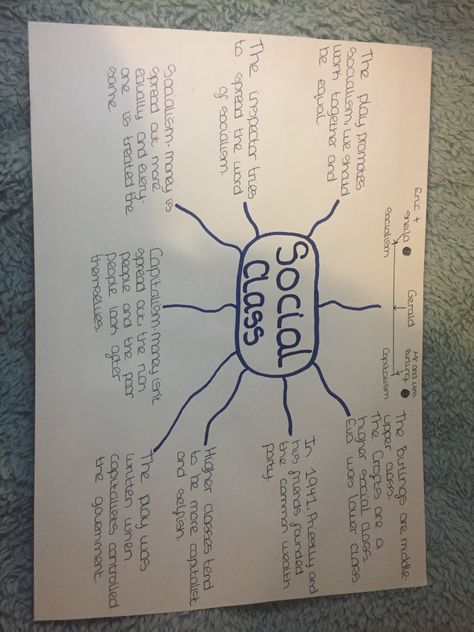 Social
Class
Eric +
Sheila
Gerald
Mr and Mrs
Birling
Socialism
Capitalism
The Birlings are middle
upper class.
The Crofts are a
higher social class
Eva was lower class
In 1941, Priestly and
his friends founded
the common wealth
party
Higher classes tend
to be more capitalist
and selfish.
The play was
written when
capitalists controlled
the government.
Capitalism-money isn't
spread out the rich
people and the poor
people look after
themselves.
Socialism-money is
spread out more
equally and every-
one is treated the
same
The inspector tries
to spread the word
of socialism.
The play promotes
socialism, we should
work together and
be equal